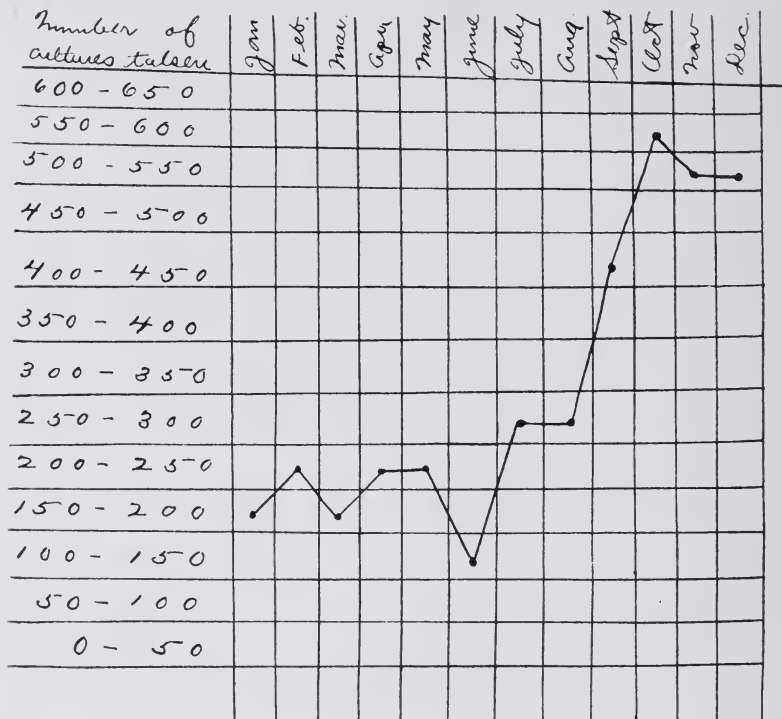 Number of
cultures taken
Jan Feb. Mar. Apr May June July Aug. Sept Oct Nov Dec.
600 - 650
550 - 600
500 - 550
450 - 500
400 - 450
350 - 400
300 - 350
250 - 300
200 - 250
150 - 200
100 - 150
50 - 100
0 - 50